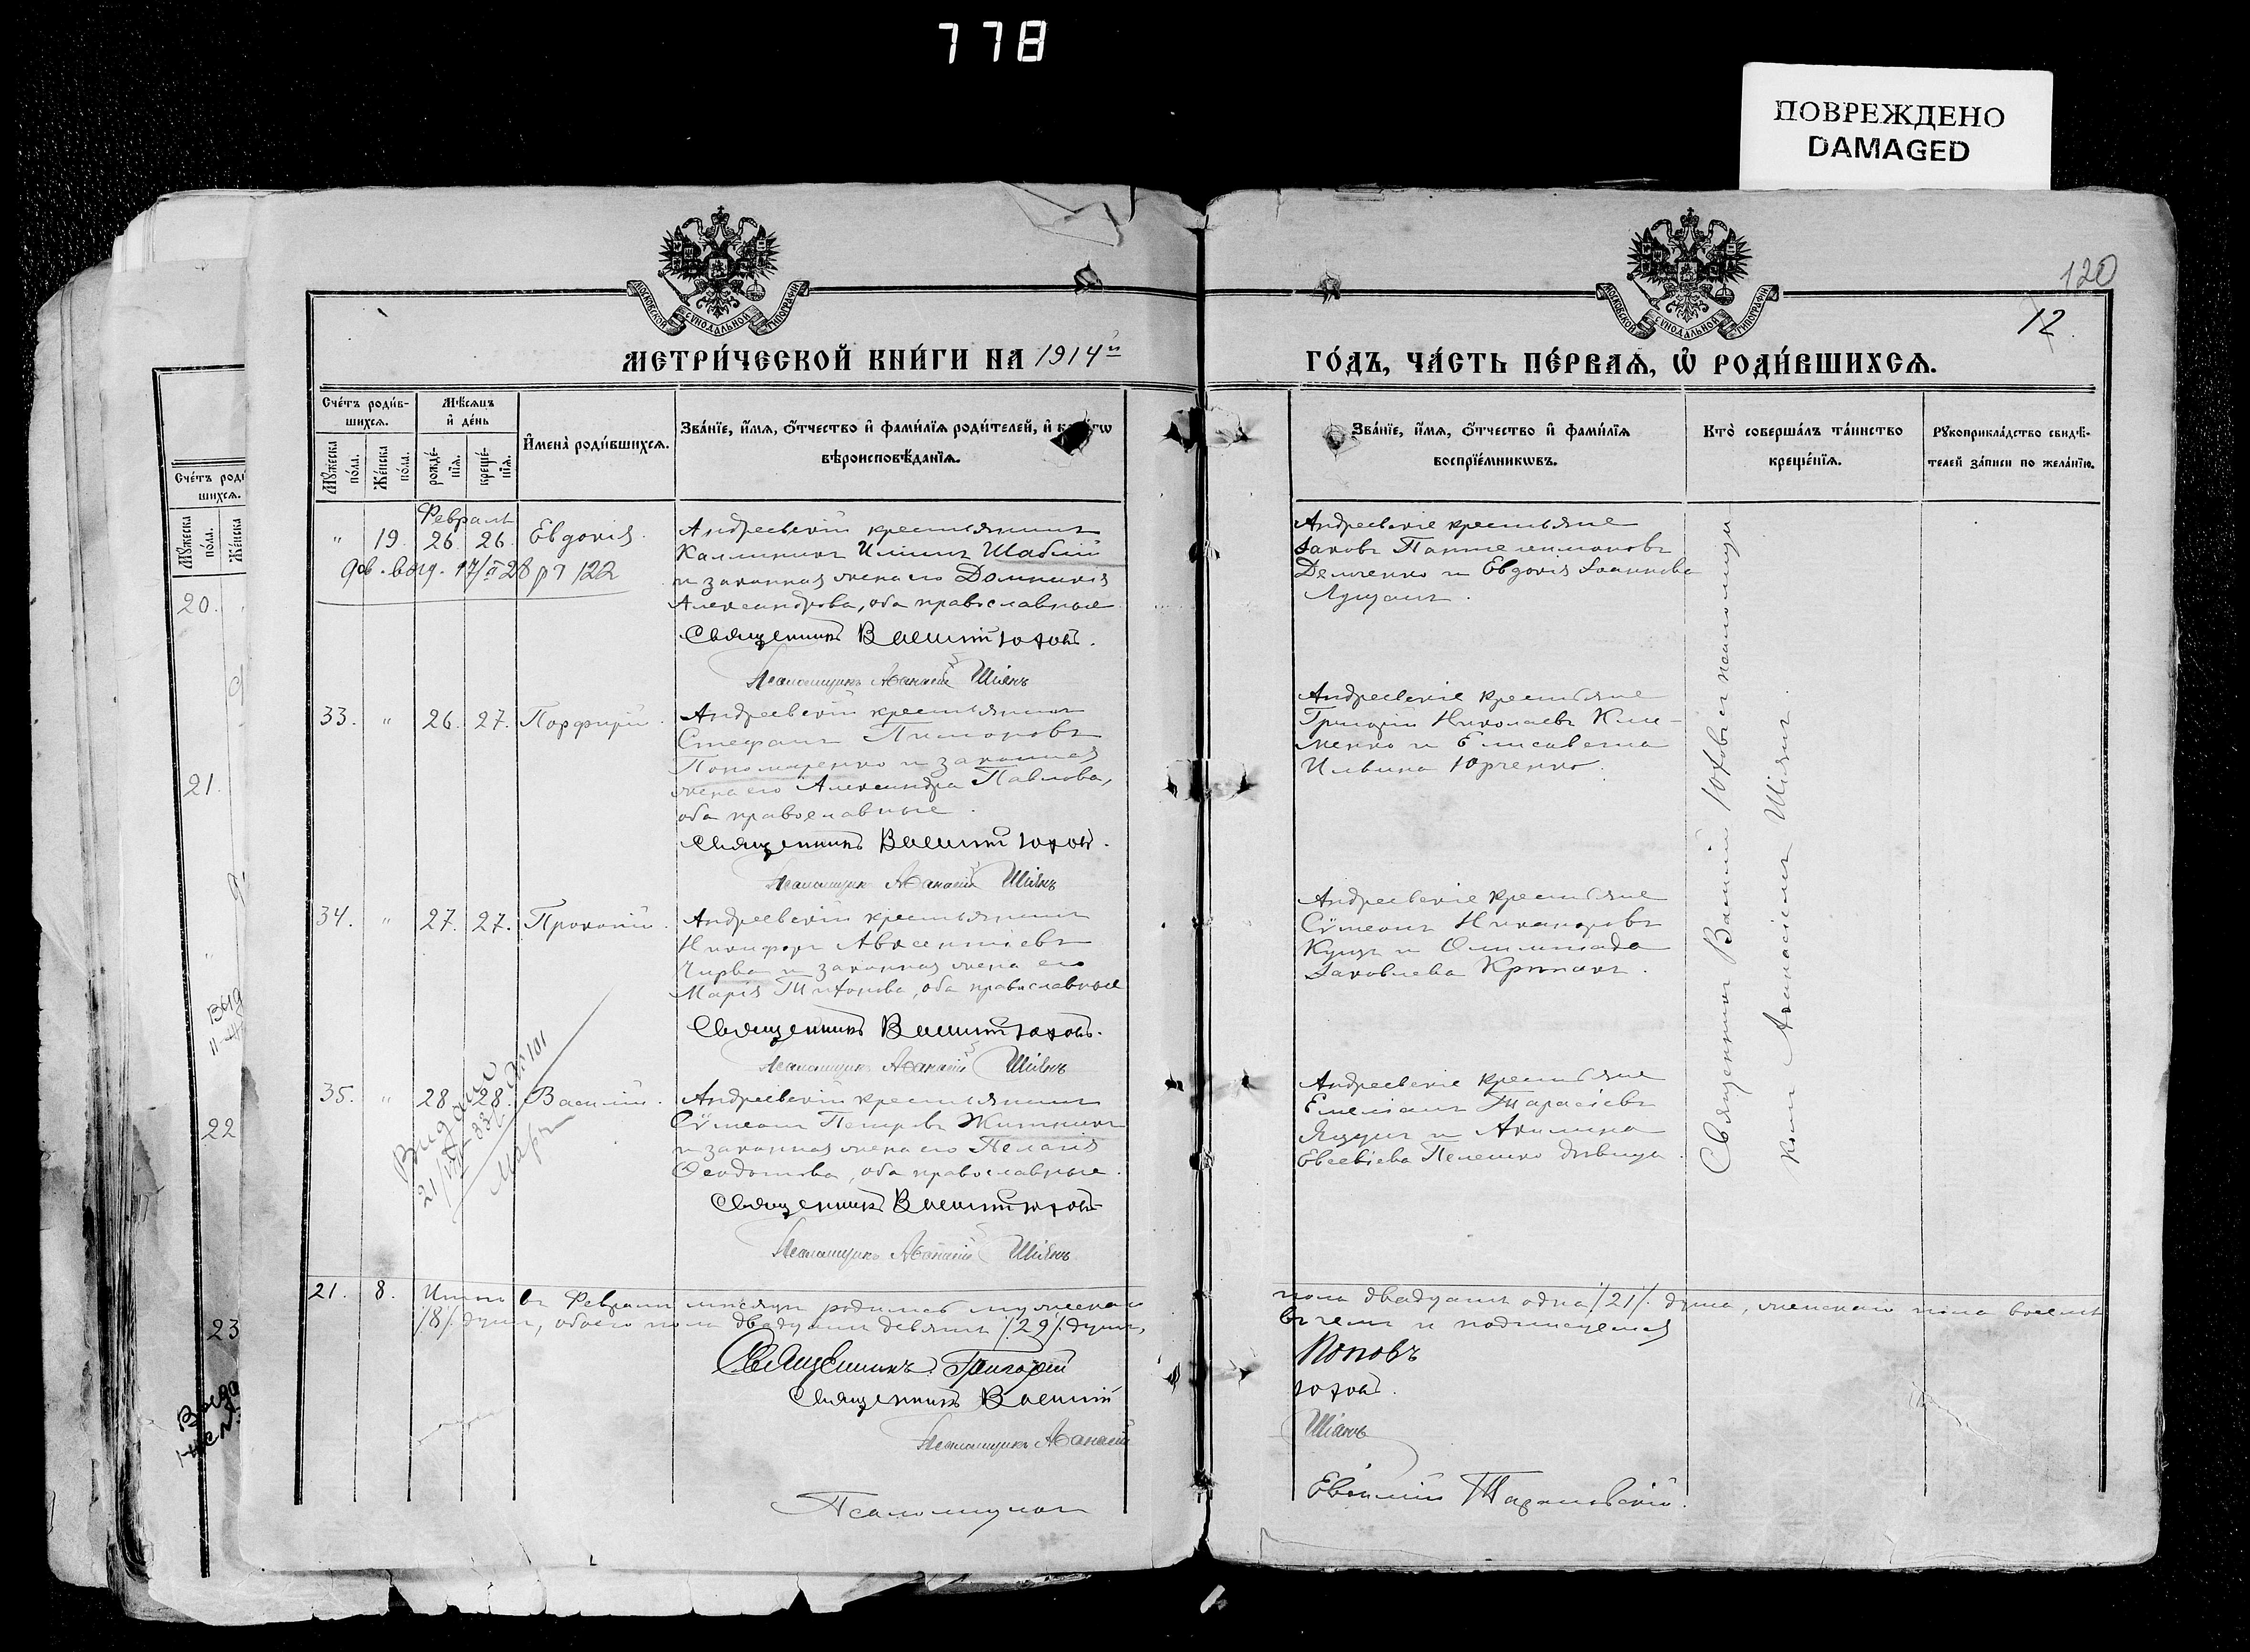 778
ПОВРЕЖДЕНО
DAMAGED
120
12.
МОСКОВСКОЙ СѴНОДАЛЬНОЙ ТИПОГРАФІИ
МОСКОВСКОЙ СѴНОДАЛЬНОЙ ТИПОГРАФІИ
МЕТРИ́ЧЕСКОЙ КНИ́ГИ НА 1914й
ГО́ДЪ, ЧА́СТЬ ПЕ́РВАѦ, Ѡ҆ РОДИ́ВШИХСѦ.
Сче́тъ роди́в-
шихсѧ.
Мꙋ́жеска по́ла.
Же́нска по́ла.
Мѣ́сѧцъ
и҆ де́нь
рожде́-
нїѧ.
креще́-
нїѧ.
И҆мена̀ роди́вшихсѧ.
Зва́нїе, и҆́мѧ, ѻ҆́тчество и҆ фами́лїѧ роди́телей, и҆
вѣроисповѣ́данїѧ.
Зва́нїе, и҆́мѧ, ѻ҆́тчество и҆ фами́лїѧ
воспрїе́мникѡвъ.
Кто̀ соверша́лъ та́инство
креще́нїѧ.
Рꙋкоприкла́дство свидѣ́-
телей за́писи по жела́нїю.
Февраль
" 19. 26. 26. Евдокія.
Андреевскій крестьянинъ
Каллиникъ Иліинъ Шаблій
и законная жена его Домникія
Александрова, оба православные
Священникъ Василій Юховъ.
Псаломщикъ Аѳанасій Шіянъ
17/II 28 р 122
Андреевскіе крестьяне
Іаковъ Пантелеимоновъ
Демченко и Евдокія Іоаннова
33. " 26. 27. Порфирій.
Андреевскій крестьянинъ
Стефанъ
Пономаренко и законная
жена его Александра Павлова,
оба православные.
Священникъ Василій Юховъ.
Псаломщикъ Аѳанасій Шіянъ
Андреевскіе крестьяне
Григорій Николаевъ Кли-
менко и Елисавета
Ильина Юрченко.
34. " 27. 27. Прокопій.
Андреевскій крестьянинъ
Никифоръ Авксентіевъ
Чирва и законная жена его
Марія Тихонова, оба православные
Священникъ Василій Юховъ.
Псаломщикъ Аѳанасій Шіянъ
Андреевскіе крестьяне
Сѵмеонъ Никаноровъ
Куцъ и Олимпіада
Іаковлева
35. " 28. 28. Василій.
Андреевскій крестьянинъ
Сѵмеонъ Петровъ Житникъ
и законная жена его Пелагія
Ѳеодотова, оба православные.
Священникъ Василій Юховъ
Псаломщикъ Аѳанасій Шіянъ
№ 101
Андреевскіе крестьяне
Емеліанъ Тарасіевъ
и Акилина
Евсевіева Пелешко дѣвица.
Священникъ Василій Юховъ съ псаломщи-
комъ Аѳанасіемъ Шіянъ.
21. 8. Итого въ Февралѣ мѣсяцѣ родилось мужескаго
пола двадцать одна /21/ душа, женскаго пола восемь
/8/ душъ, обоего пола двадцать девять /29/ душъ,
въ чемъ и подписуемся
Священникъ Григорій Поповъ
Священникъ Василій Юховъ.
Псаломщикъ Аѳанасій Шіянъ
Псаломщикъ Евѳимій
Сче́тъ роди́
шихсѧ.
Мꙋ́жеска по́ла.
Же́нска
20.
21.
22
23